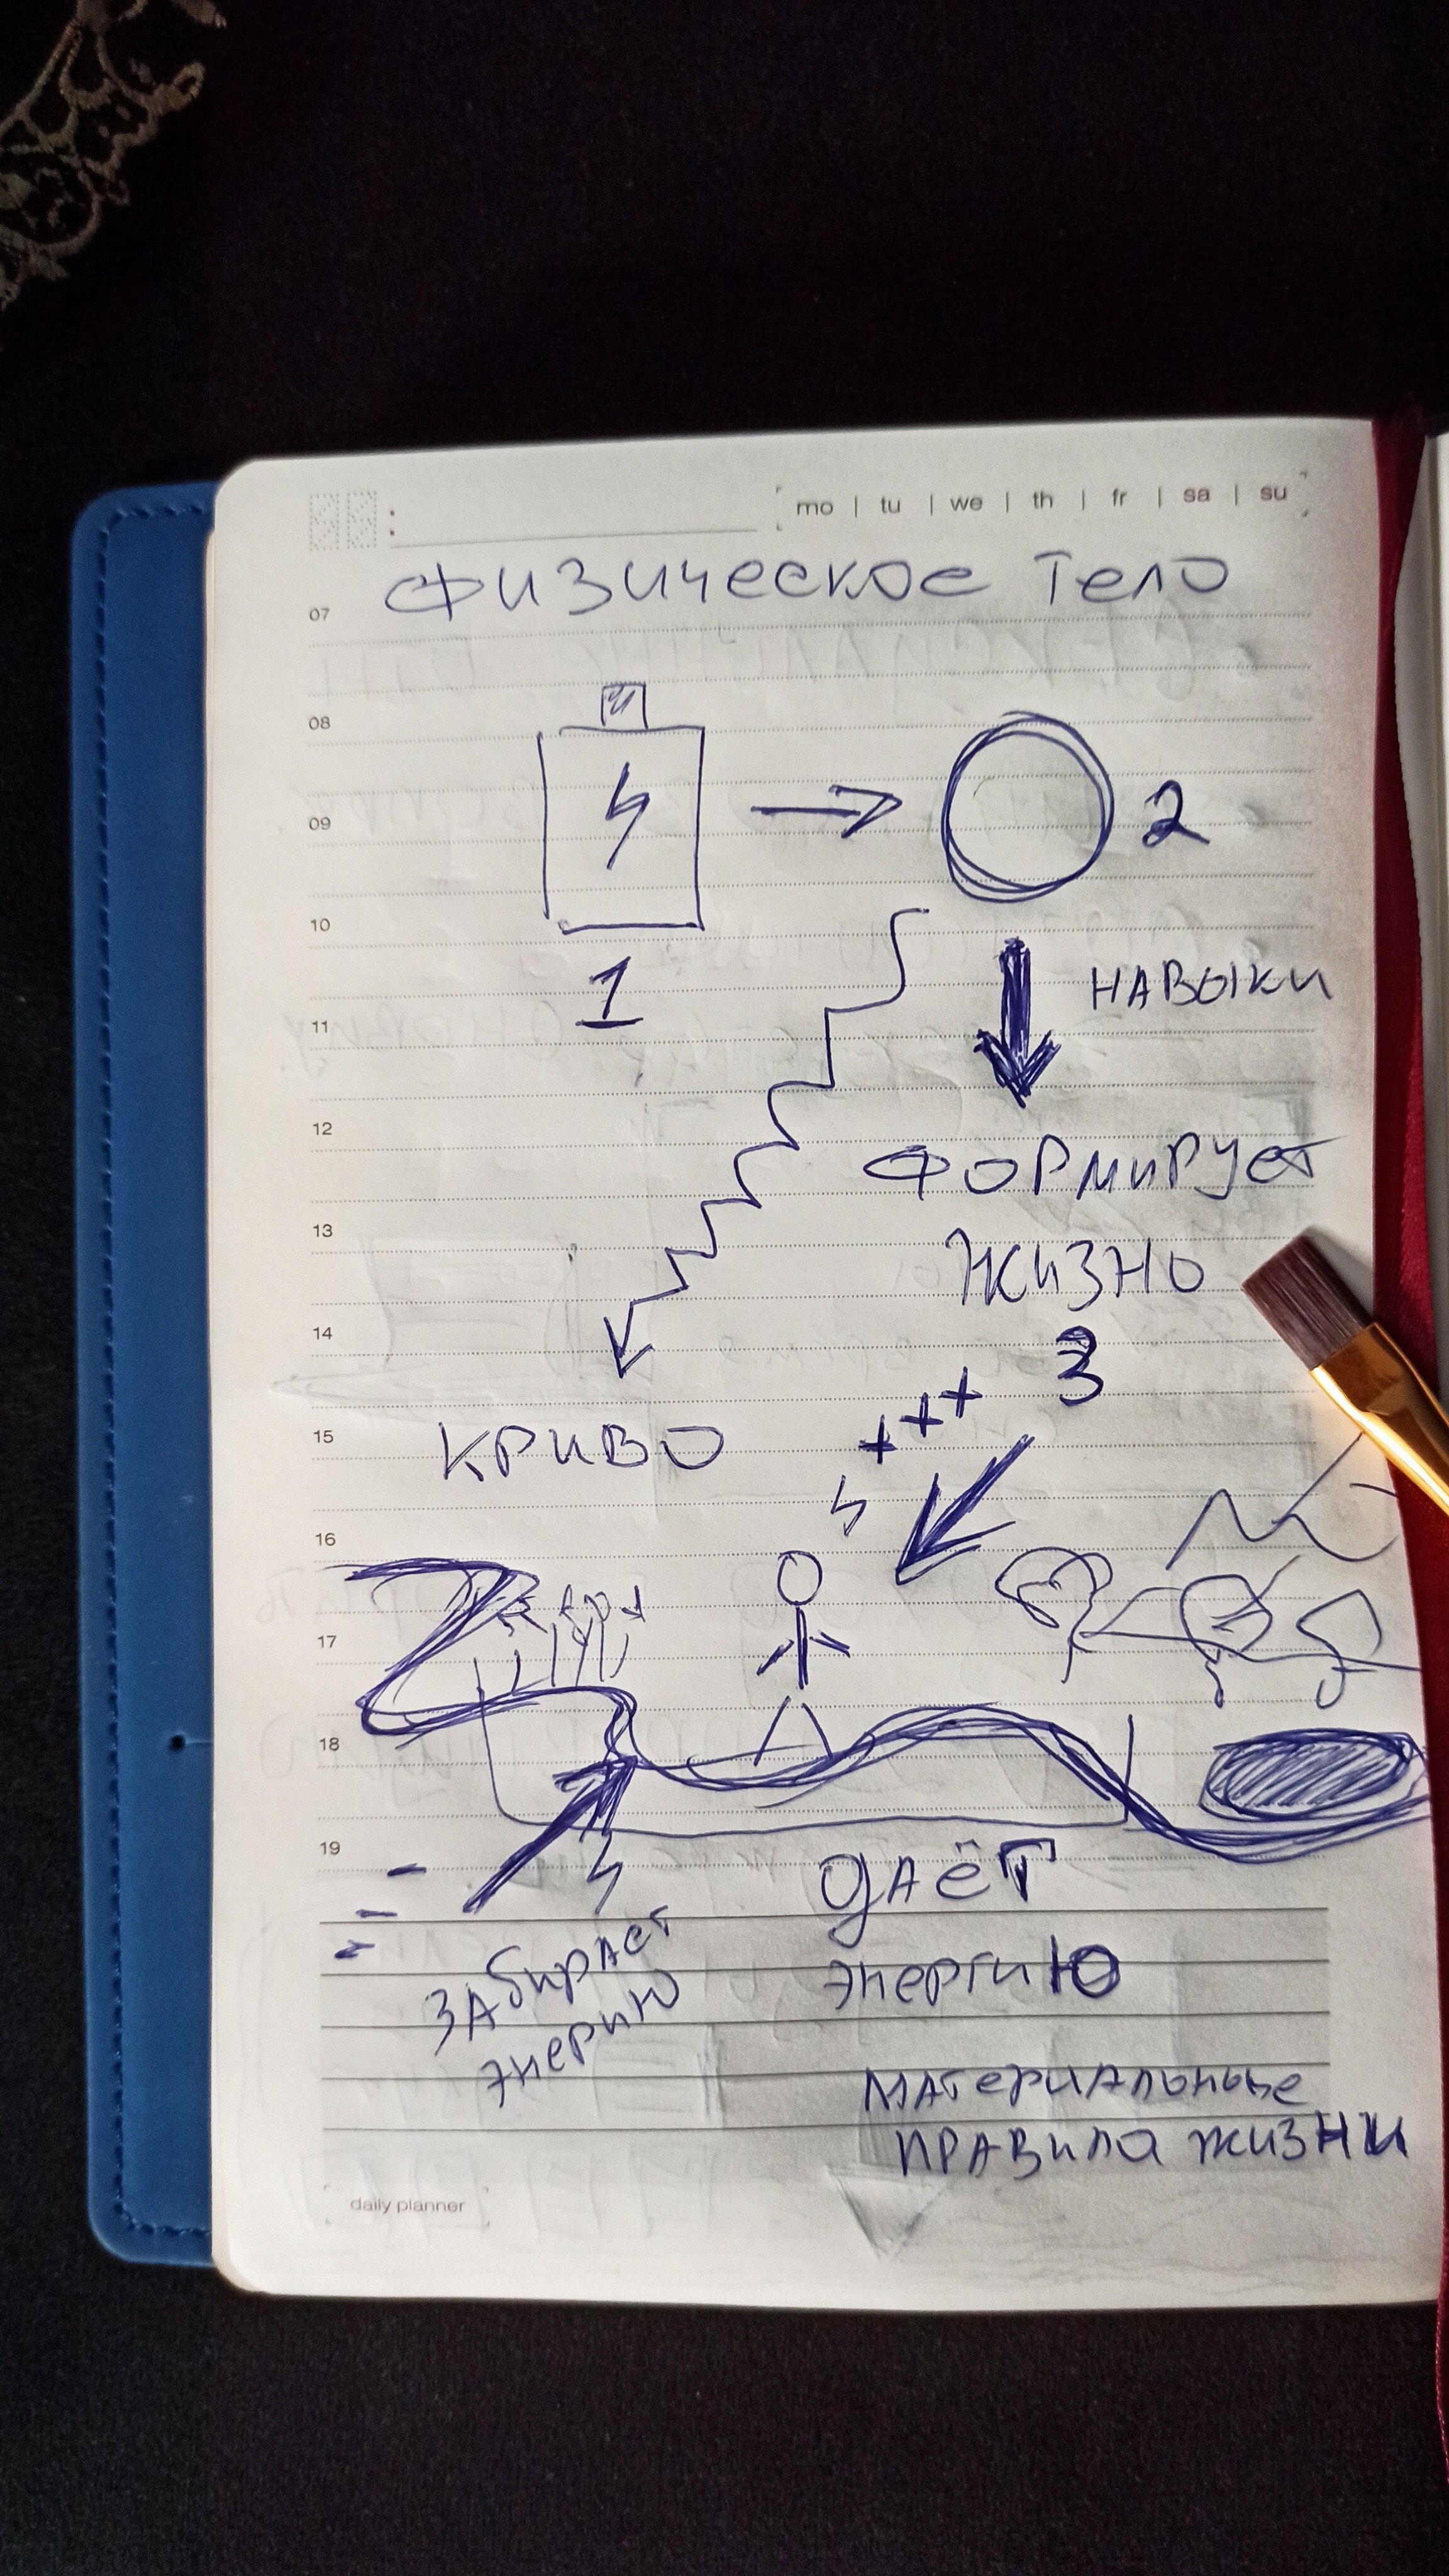 mo | tu | we | th | fr | sa | su
Физическое тело
07
08
09
2
10
1
навыки
11
12
формирует
13
жизнь
14
3
15
криво
+++
16
17
18
19
даёт
забирает
энергию
энерию
материальные
правила жизни
daily planner